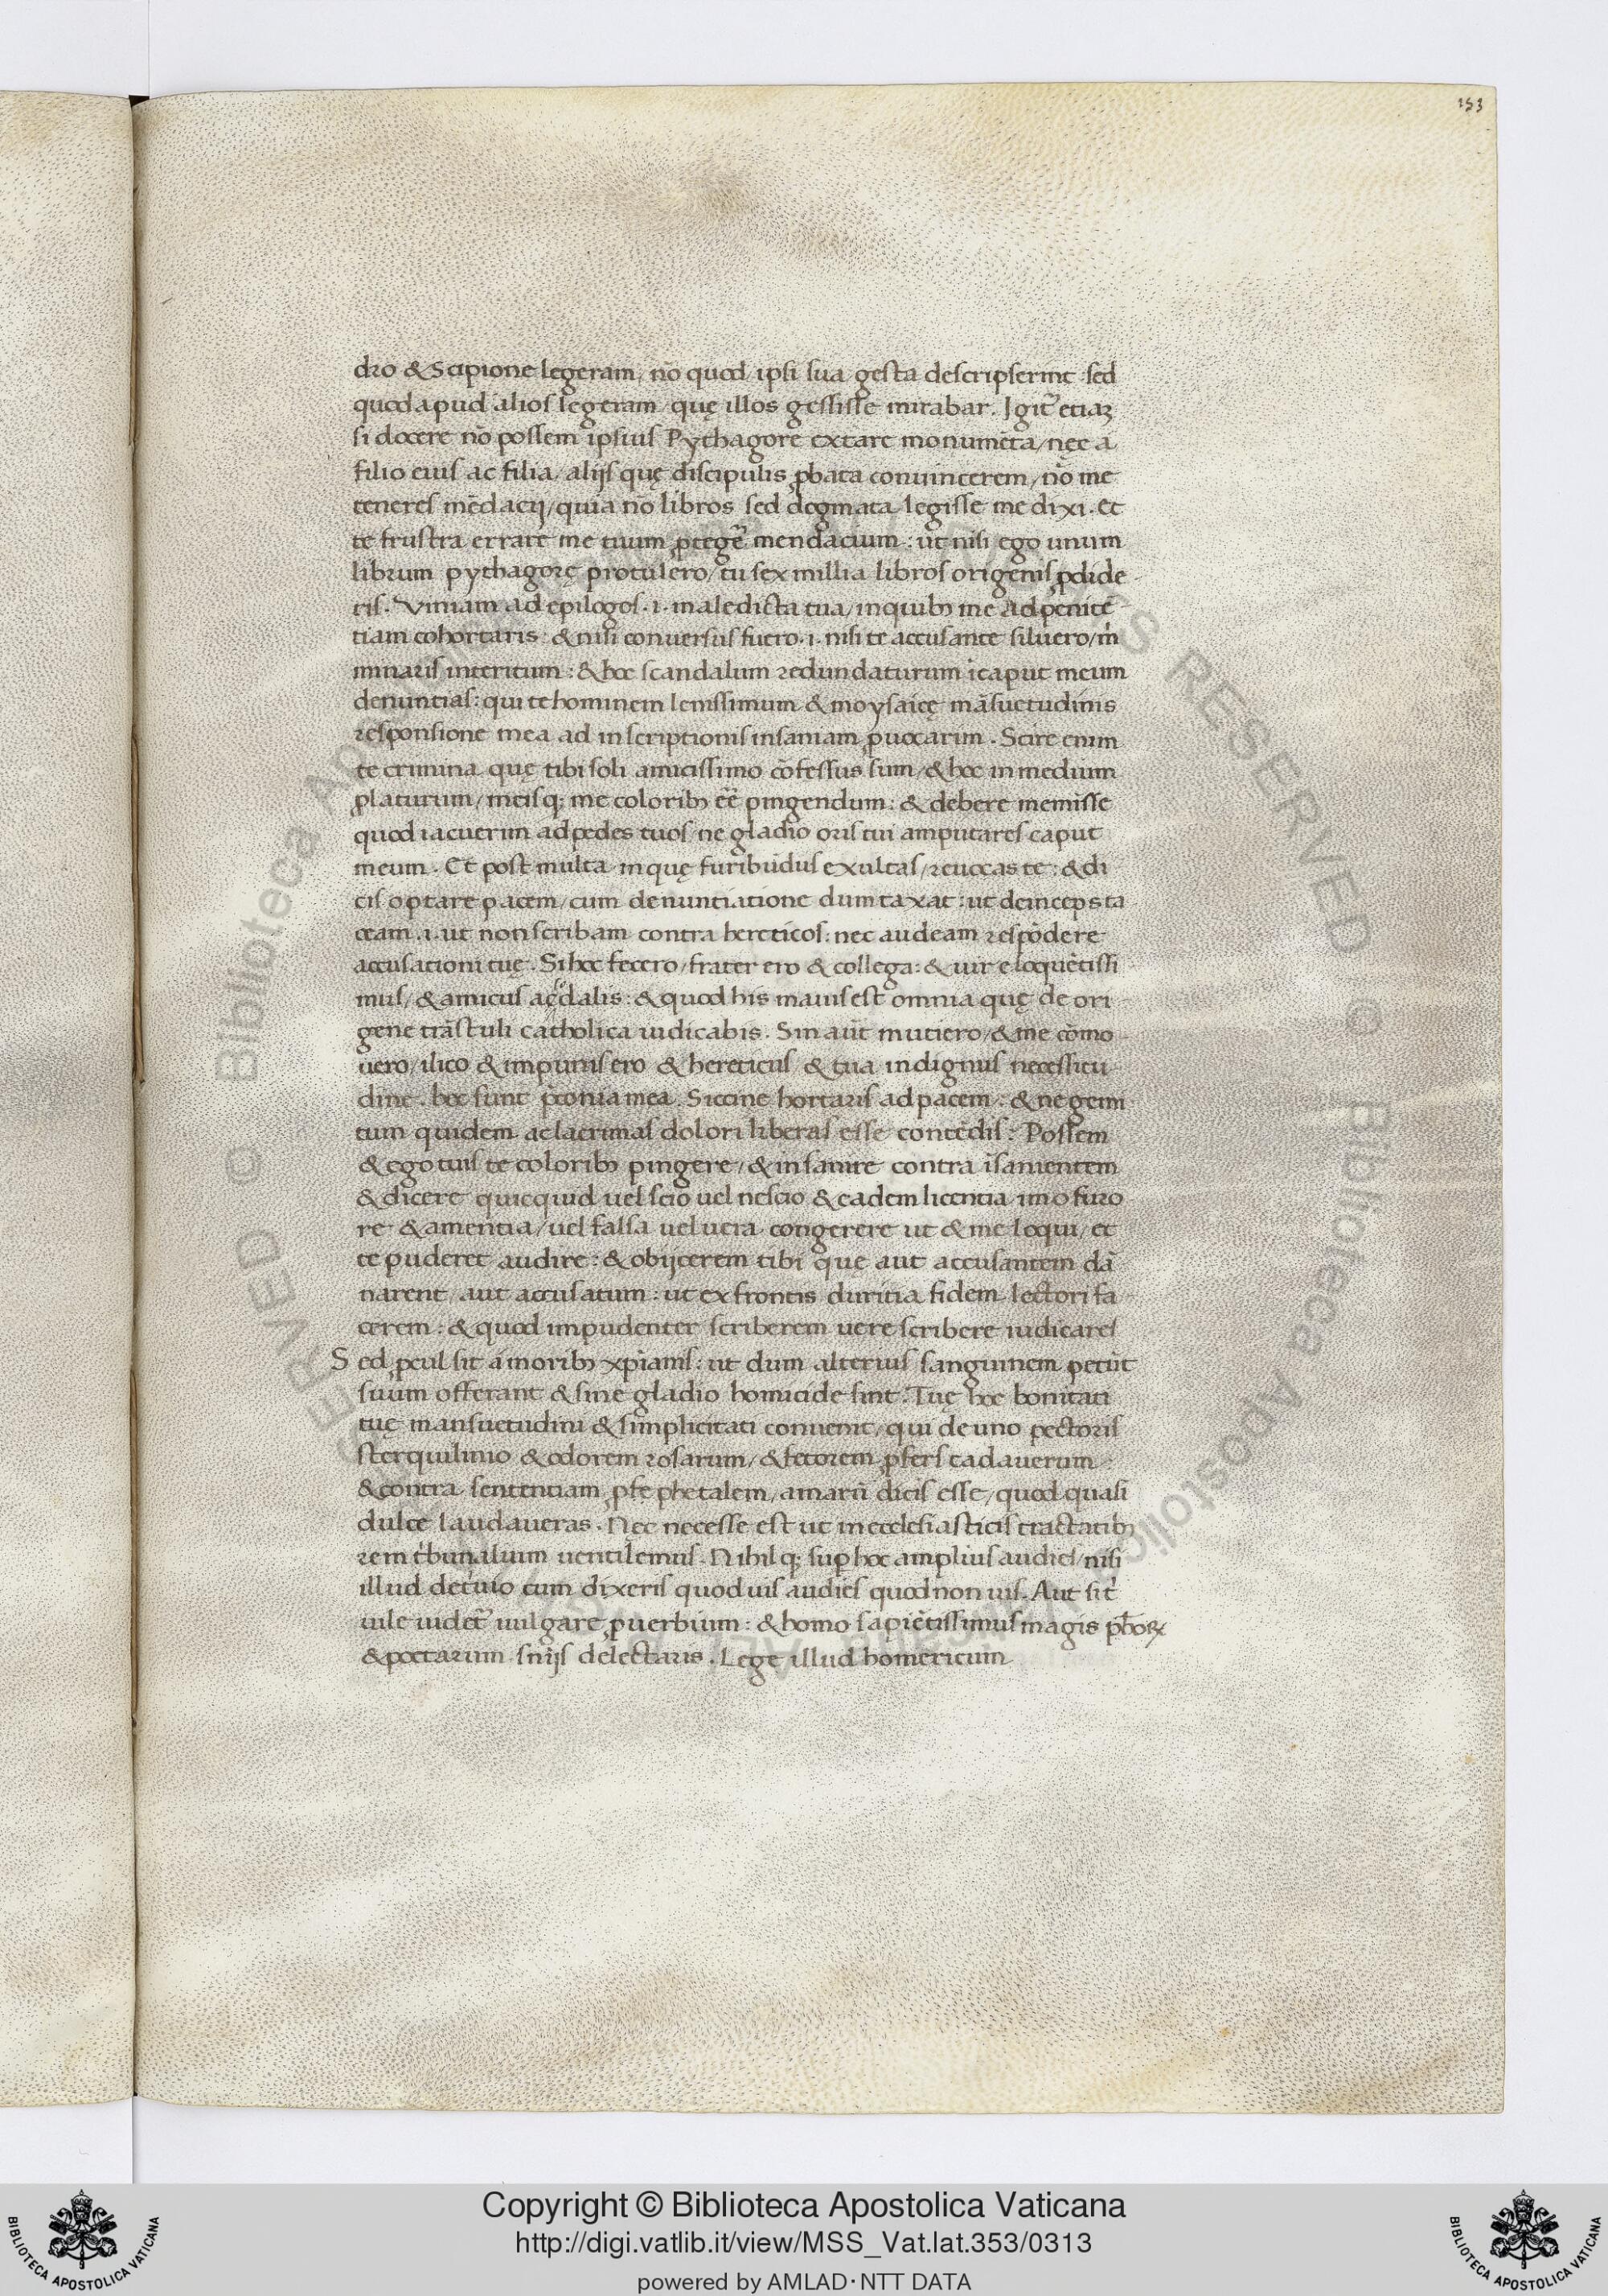 153
dro & Scipione legeram, nō quod ipsi sua gesta descripserint sed
quod apud alios legeram, quę illos gessisse mirabar. Igit̃ etiaʒ
si docere nō possem ipsius Pythagore extare monumēta, nęc a
filio eius ac filia, aliisquę discipulis ꝓbata conuincerem, nō me
teneres mēdacij, quia nō libros sed dogmata legisse me dixi. Et
te frustra errare me tuum ꝓtegẽ mendacium: ut nisi ego unum
librum pythagorę protulero, tu sex millia libros origenis ꝓdide
ris. Veniam ad epilogos .i. maledicta tua, in quibȝ me ad penitē
tiam cohortaris: & nisi conuersus fuero .i. nisi te accusante siluero, m̄
minaris interitum: & hoc scandalum redundaturum ī caput meum
denuntias: qui te hominem lenissimum & moysaicę māsuetudinis
responsione mea ad inscriptionis insaniam ꝓuocarim. Scire enim
te crimina quę tibi soli amicissimo cōfessus sum, & hoc in medium
ꝓlaturum, meisqȝ me coloribȝ eẽ pingendum: & debere memisse
quod iacuerim ad pedes tuos, ne gladio oris tui amputares caput
meum. Et post multa in quę furibūdus exultas, reuocas te: & di
cis optare pacem, cum denuntiatione dumtaxat: ut deinceps ta
ceam .i. ut non scribam contra hereticos: nec audeam respōdere
accusationi tuę. Si hoc fecero, frater ero & collega: & uir eloquētissi
mus, & amicus dalis: & quod his maius est omnia quę de ori
gene trāstuli catholica iudicabis. Sin aūt mutiero, & me cōmo
uero, ilico & impurus ero & hereticus & tua indignus necessitu
dine. hęc sunt p̄conia mea. Siccine hortaris ad pacem: & ne gemi
tum quidem ac lacrimas dolori liberas esse concēdis: Possem
& ego tuis te coloribȝ pingere, & insanire contra īsanientem
& dicere quicquid uel scio uel nescio & eadem licentia imo furo
re & amentia, uel falsa uel uera congerere ut & me loqui, et
te puderet audire: & obijcerem tibi quę aut accusantem dā
narent, aut accusatum: ut ex frontis duritia fidem lectori fa
cerem: & quod impudenter scriberem uere scribere iudicares
Sed ꝓcul sit a moribȝ xp̄ianis: ut dum alterius sanguinem petūt
suum offerant & sine gladio homicide sint. Tuę hoc bonitati
tuę mansuetudini & simplicitati conuenit, qui de uno pectoris
sterquilinio & odorem rosarum, & fetorem ꝓfers cadauerum
& contra sententiam ꝓphetalem, amarū dicis esse, quod quasi
dulce laudaueras. Nec necesse est ut in ecclesiasticis tractatibȝ
rem tribunalium uentilemus. Nihilqȝ suꝑ hoc amplius audies, nisi
illud de cum dixeris quod uis audies quod non uis. Aut si t̾
uile uidet̃ uulgare ꝓuerbium: & homo sapiētissimus magis ph̄oꝝ
& poetarum sn̄ijs delectaris. Lege illud homericum
Copyright © Biblioteca Apostolica Vaticana
http://digi.vatlib.it/view/MSS_Vat.lat.353/0313
powered by AMLAD·NTT DATA